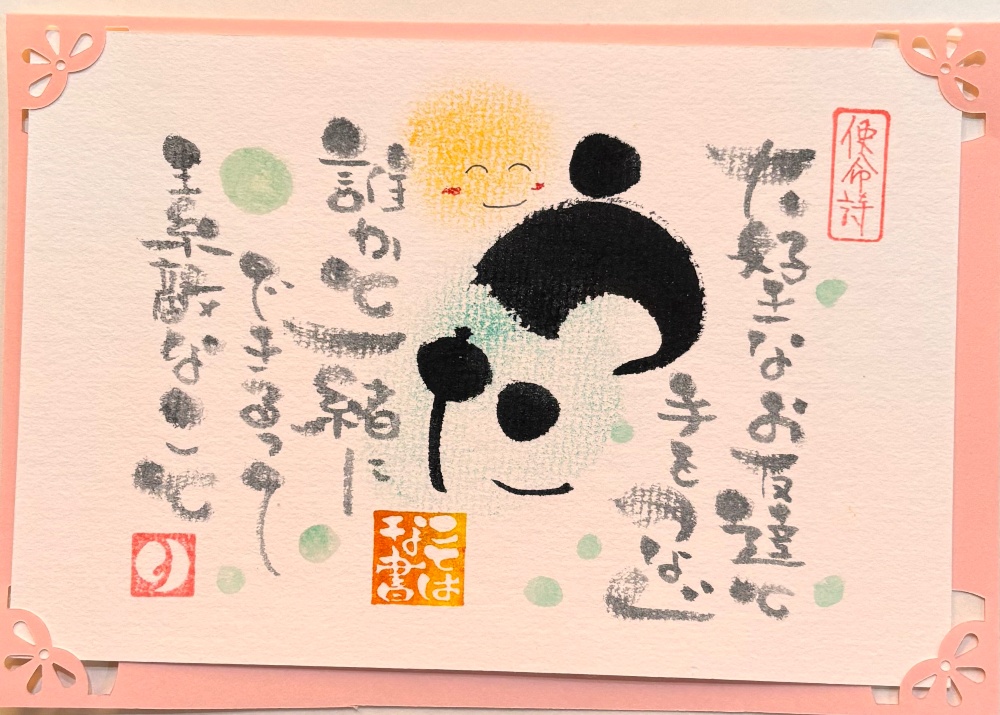 使命詩
大好きなお友達と
手をつなぐ
誰かと一緒に
できるって
素敵なこと
ことは
な書